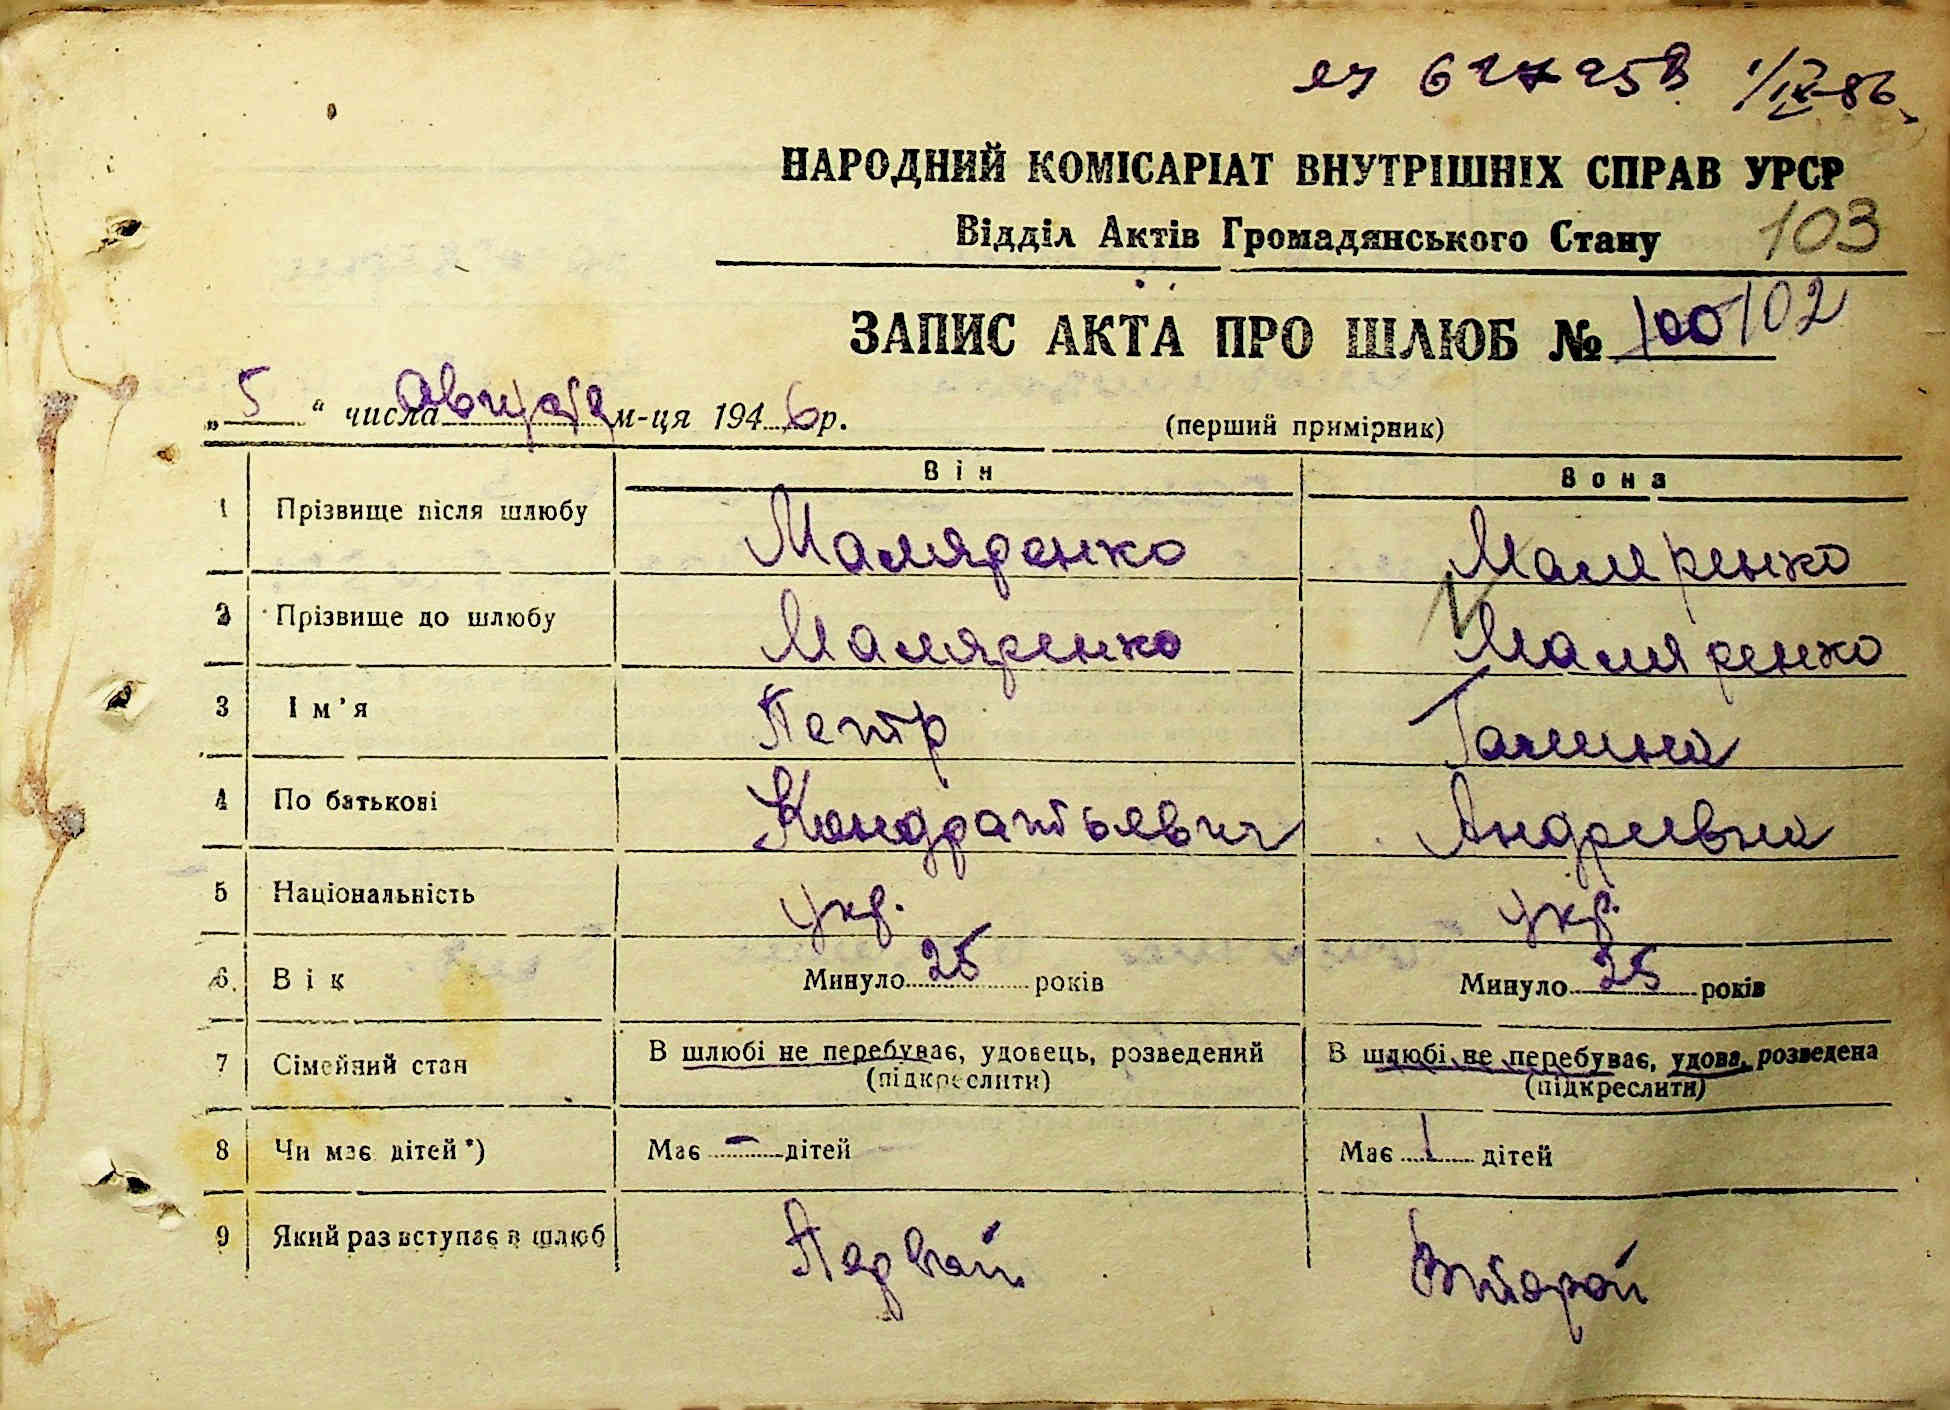 627258 1/IV-86
НАРОДНИЙ КОМІСАРІАТ ВНУТРІШНІХ СПРАВ УРСР
Відділ Актів Громадянського Стану 103
ЗАПИС АКТА ПРО ШЛЮБ № 100 102
„ 5 " числа Августа м-ця 1946 р. (перший примірник)
Він Вона
1 Прізвище після шлюбу Маляренко Маляренко
2 Прізвище до шлюбу Маляренко Маляренко
3 Ім'я Петр Галина
4 По батькові Кондратьевич Андреевна
5 Національність укр. укр.
6. Вік Минуло 25 років Минуло 25 років
7 Сімейний стан В шлюбі не перебуває, удовець, розведений В шлюбі не перебуває, удова, розведена
(підкреслити) (підкреслити)
8 Чи має дітей *) Має – дітей Має 1 дітей
9 Який раз вступає в шлюб Первый Второй